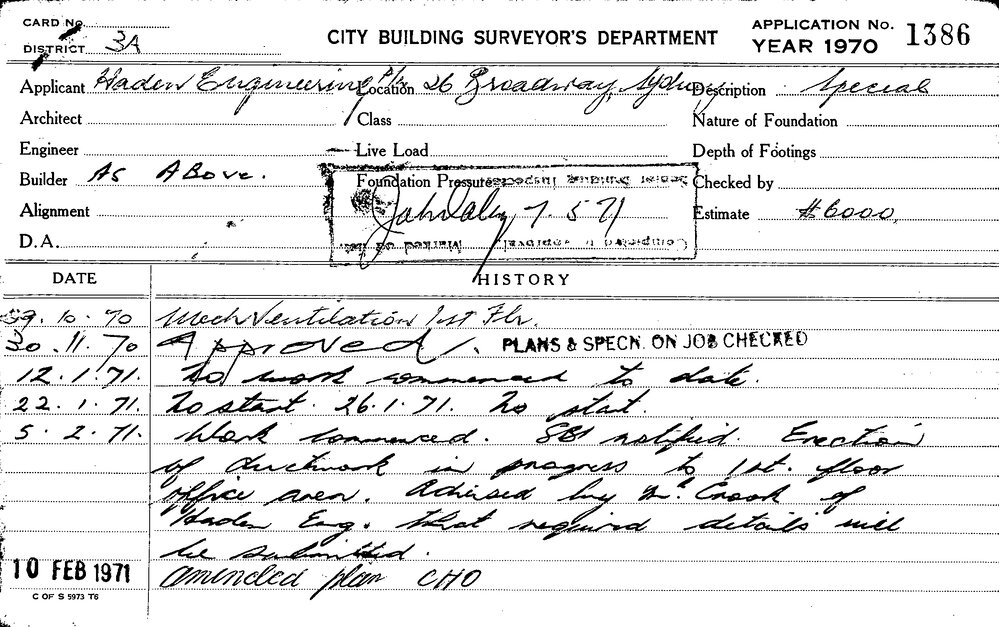 CARD No.
DISTRICT 3A
CITY BUILDING SURVEYOR'S DEPARTMENT
APPLICATION No. 1386
YEAR 1970
Applicant Haden Engineering P/L Location 26 Broadway, Sydney Description Special
Architect Class Nature of Foundation
Engineer Live Load Depth of Footings
Builder As Above. Foundation Pressure Checked by
Senior Building Inspector
Alignment John Daley 7.5.71 Estimate $6000.
D.A. Completed in approval Marked off
DATE HISTORY
29.10.70 Mech Ventilation 1st Flr.
30.11.70 Approved. PLANS & SPECN. ON JOB CHECKED
12.1.71. No work commenced to date.
22.1.71. No start. 26.1.71. No start.
5.2.71. Work commenced. SBI notified. Erection
of ductwork in progress to 1st. floor
office area. Advised by Mr. Crook of
Haden Eng. that required details will
be submitted.
10 FEB 1971 amended plan CHO
C OF S 5973 T6